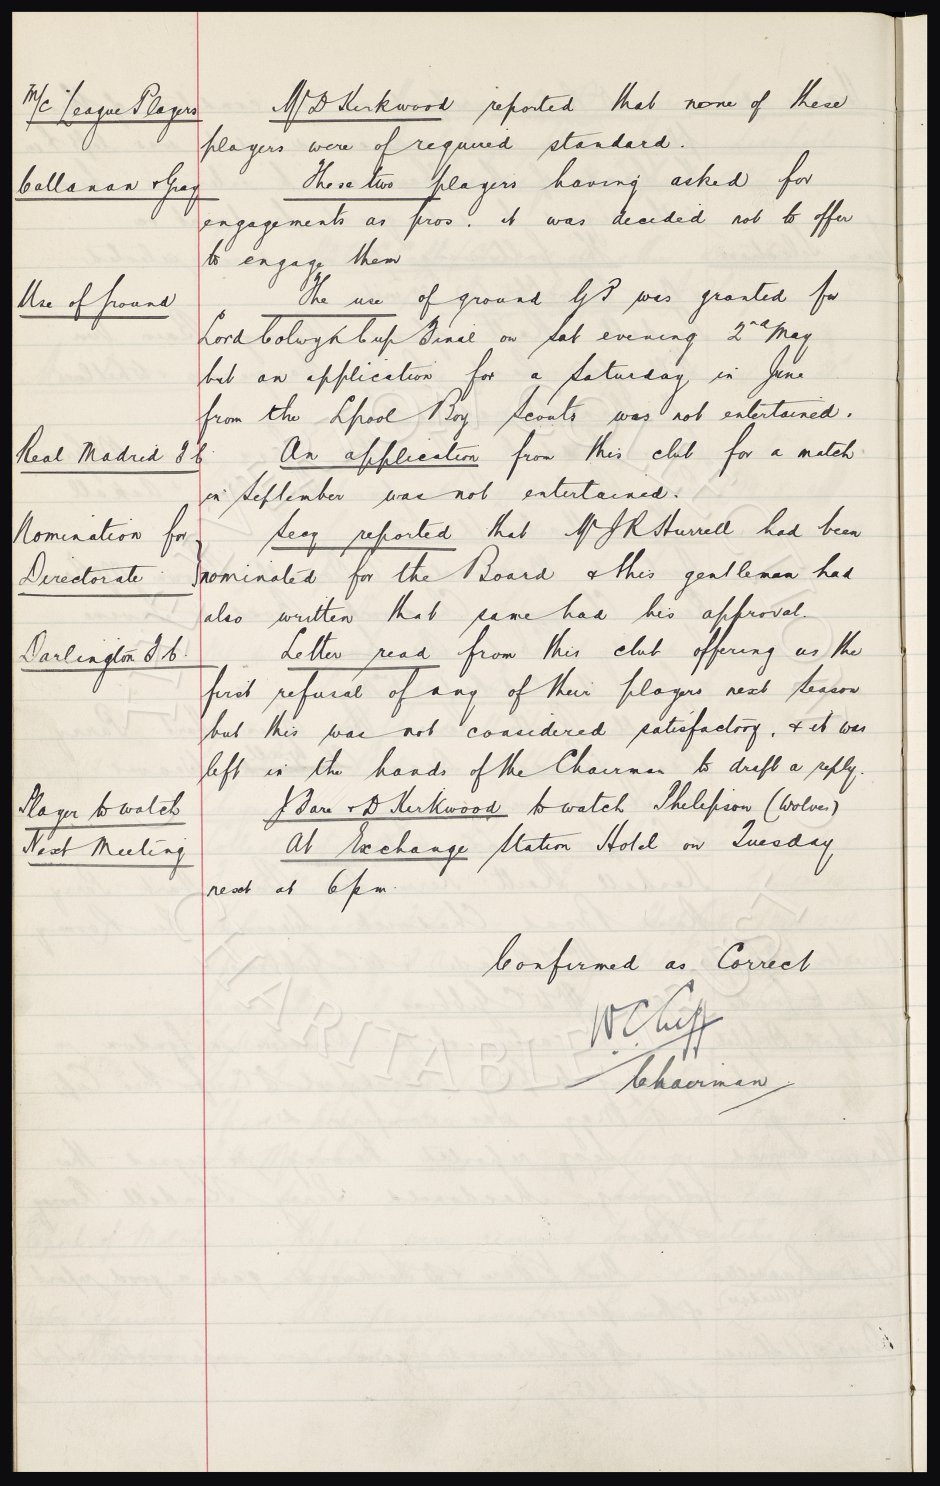 M/C League Players Mr D Kirkwood reported that none of these
players were of required standard.
Callanan & Gray These two players having asked for
engagements as pros. it was decided not to offer
to engage them
Use of Ground The use of ground GP was granted for
Lord Colwyn Cup Final on Sat evening 2nd May
but an application for a Saturday in June
from the Lpool Boy Scouts was not entertained.
Real Madrid F C An application from this club for a match
in September was not entertained.
Nomination for Secy reported that Mr J R Hurrell had been
Directorate nominated for the Board & this gentleman had
also written that same had his approval.
Darlington F C. Letter read from this club offering us the
first refusal of any of their players next season
but this was not considered satisfactory, & it was
left in the hands of the Chairman to draft a reply.
Player to watch J Bare & D Kirkwood to watch Phillipson (Wolves)
Next Meeting At Exchange Station Hotel on Tuesday
next at 6pm.
Confirmed as Correct
W. C. Cuff
Chairman
CHARITABLE